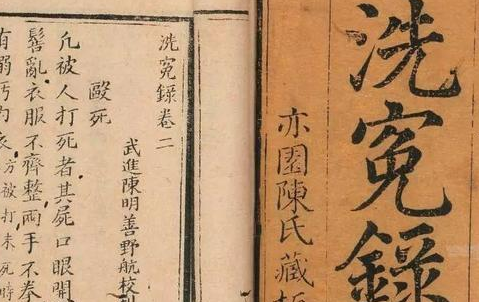 洗冤錄
亦園陳氏藏板
洗冤錄卷二
武進陳明善野航校刊
毆死
凡被人打死者其屍口眼開
髻亂衣服不齊整兩手不拳
有溺污內衣方被打未死時